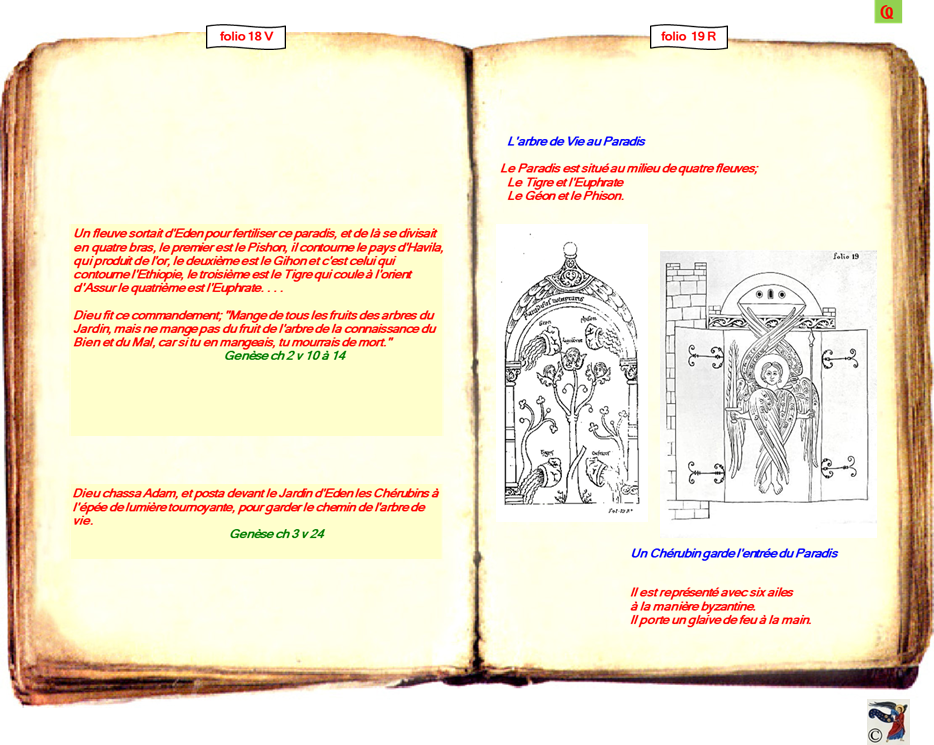 folio 18 V
Un fleuve sortait d'Eden pour fertiliser ce paradis, et de là se divisait
en quatre bras, le premier est le Pishon, il contourne le pays d'Havila,
qui produit de l'or, le deuxième est le Gihon et c'est celui qui
contourne l'Ethiopie, le troisième est le Tigre qui coule à l'orient
d'Assur le quatrième est l'Euphrate. . . .
Dieu fit ce commandement; "Mange de tous les fruits des arbres du
Jardin, mais ne mange pas du fruit de l'arbre de la connaissance du
Bien et du Mal, car si tu en mangeais, tu mourrais de mort."
Genèse ch 2 v 10 à 14
Dieu chassa Adam, et posta devant le Jardin d'Eden les Chérubins à
l'épée de lumière tournoyante, pour garder le chemin de l'arbre de
vie.
Genèse ch 3 v 24
folio 19 R
L'arbre de Vie au Paradis
Le Paradis est situé au milieu de quatre fleuves;
Le Tigre et l'Euphrate
Le Géon et le Phison.
folio 19
Un Chérubin garde l'entrée du Paradis
Il est représenté avec six ailes
à la manière byzantine.
Il porte un glaive de feu à la main.
©